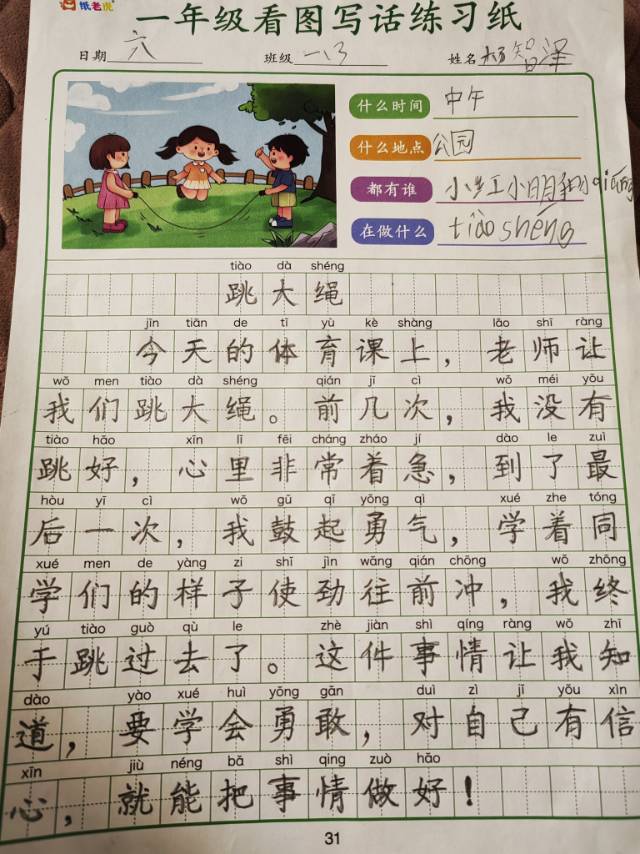 纸老虎
一年级看图写话练习纸
日期 六 班级 一、3 姓名 杨智泽
什么时间 中午
什么地点 公园
都有谁 小红小明和小qiáng
在做什么 tiào shéng
tiào dà shéng
跳大绳
jīn tiān de tǐ yù kè shàng lǎo shī ràng
今天的体育课上，老师让
wǒ men tiào dà shéng qián jǐ cì wǒ méi yǒu
我们跳大绳。前几次，我没有
tiào hǎo xīn lǐ fēi cháng zháo jí dào le zuì
跳好，心里非常着急，到了最
hòu yī cì wǒ gǔ qǐ yǒng qì xué zhe tóng
后一次，我鼓起勇气，学着同
xué men de yàng zi shǐ jìn wǎng qián chōng wǒ zhōng
学们的样子使劲往前冲，我终
yú tiào guò qù le zhè jiàn shì qíng ràng wǒ zhī
于跳过去了。这件事情让我知
dào yào xué huì yǒng gǎn duì zì jǐ yǒu xìn
道，要学会勇敢，对自己有信
xīn jiù néng bǎ shì qing zuò hǎo
心，就能把事情做好！
31